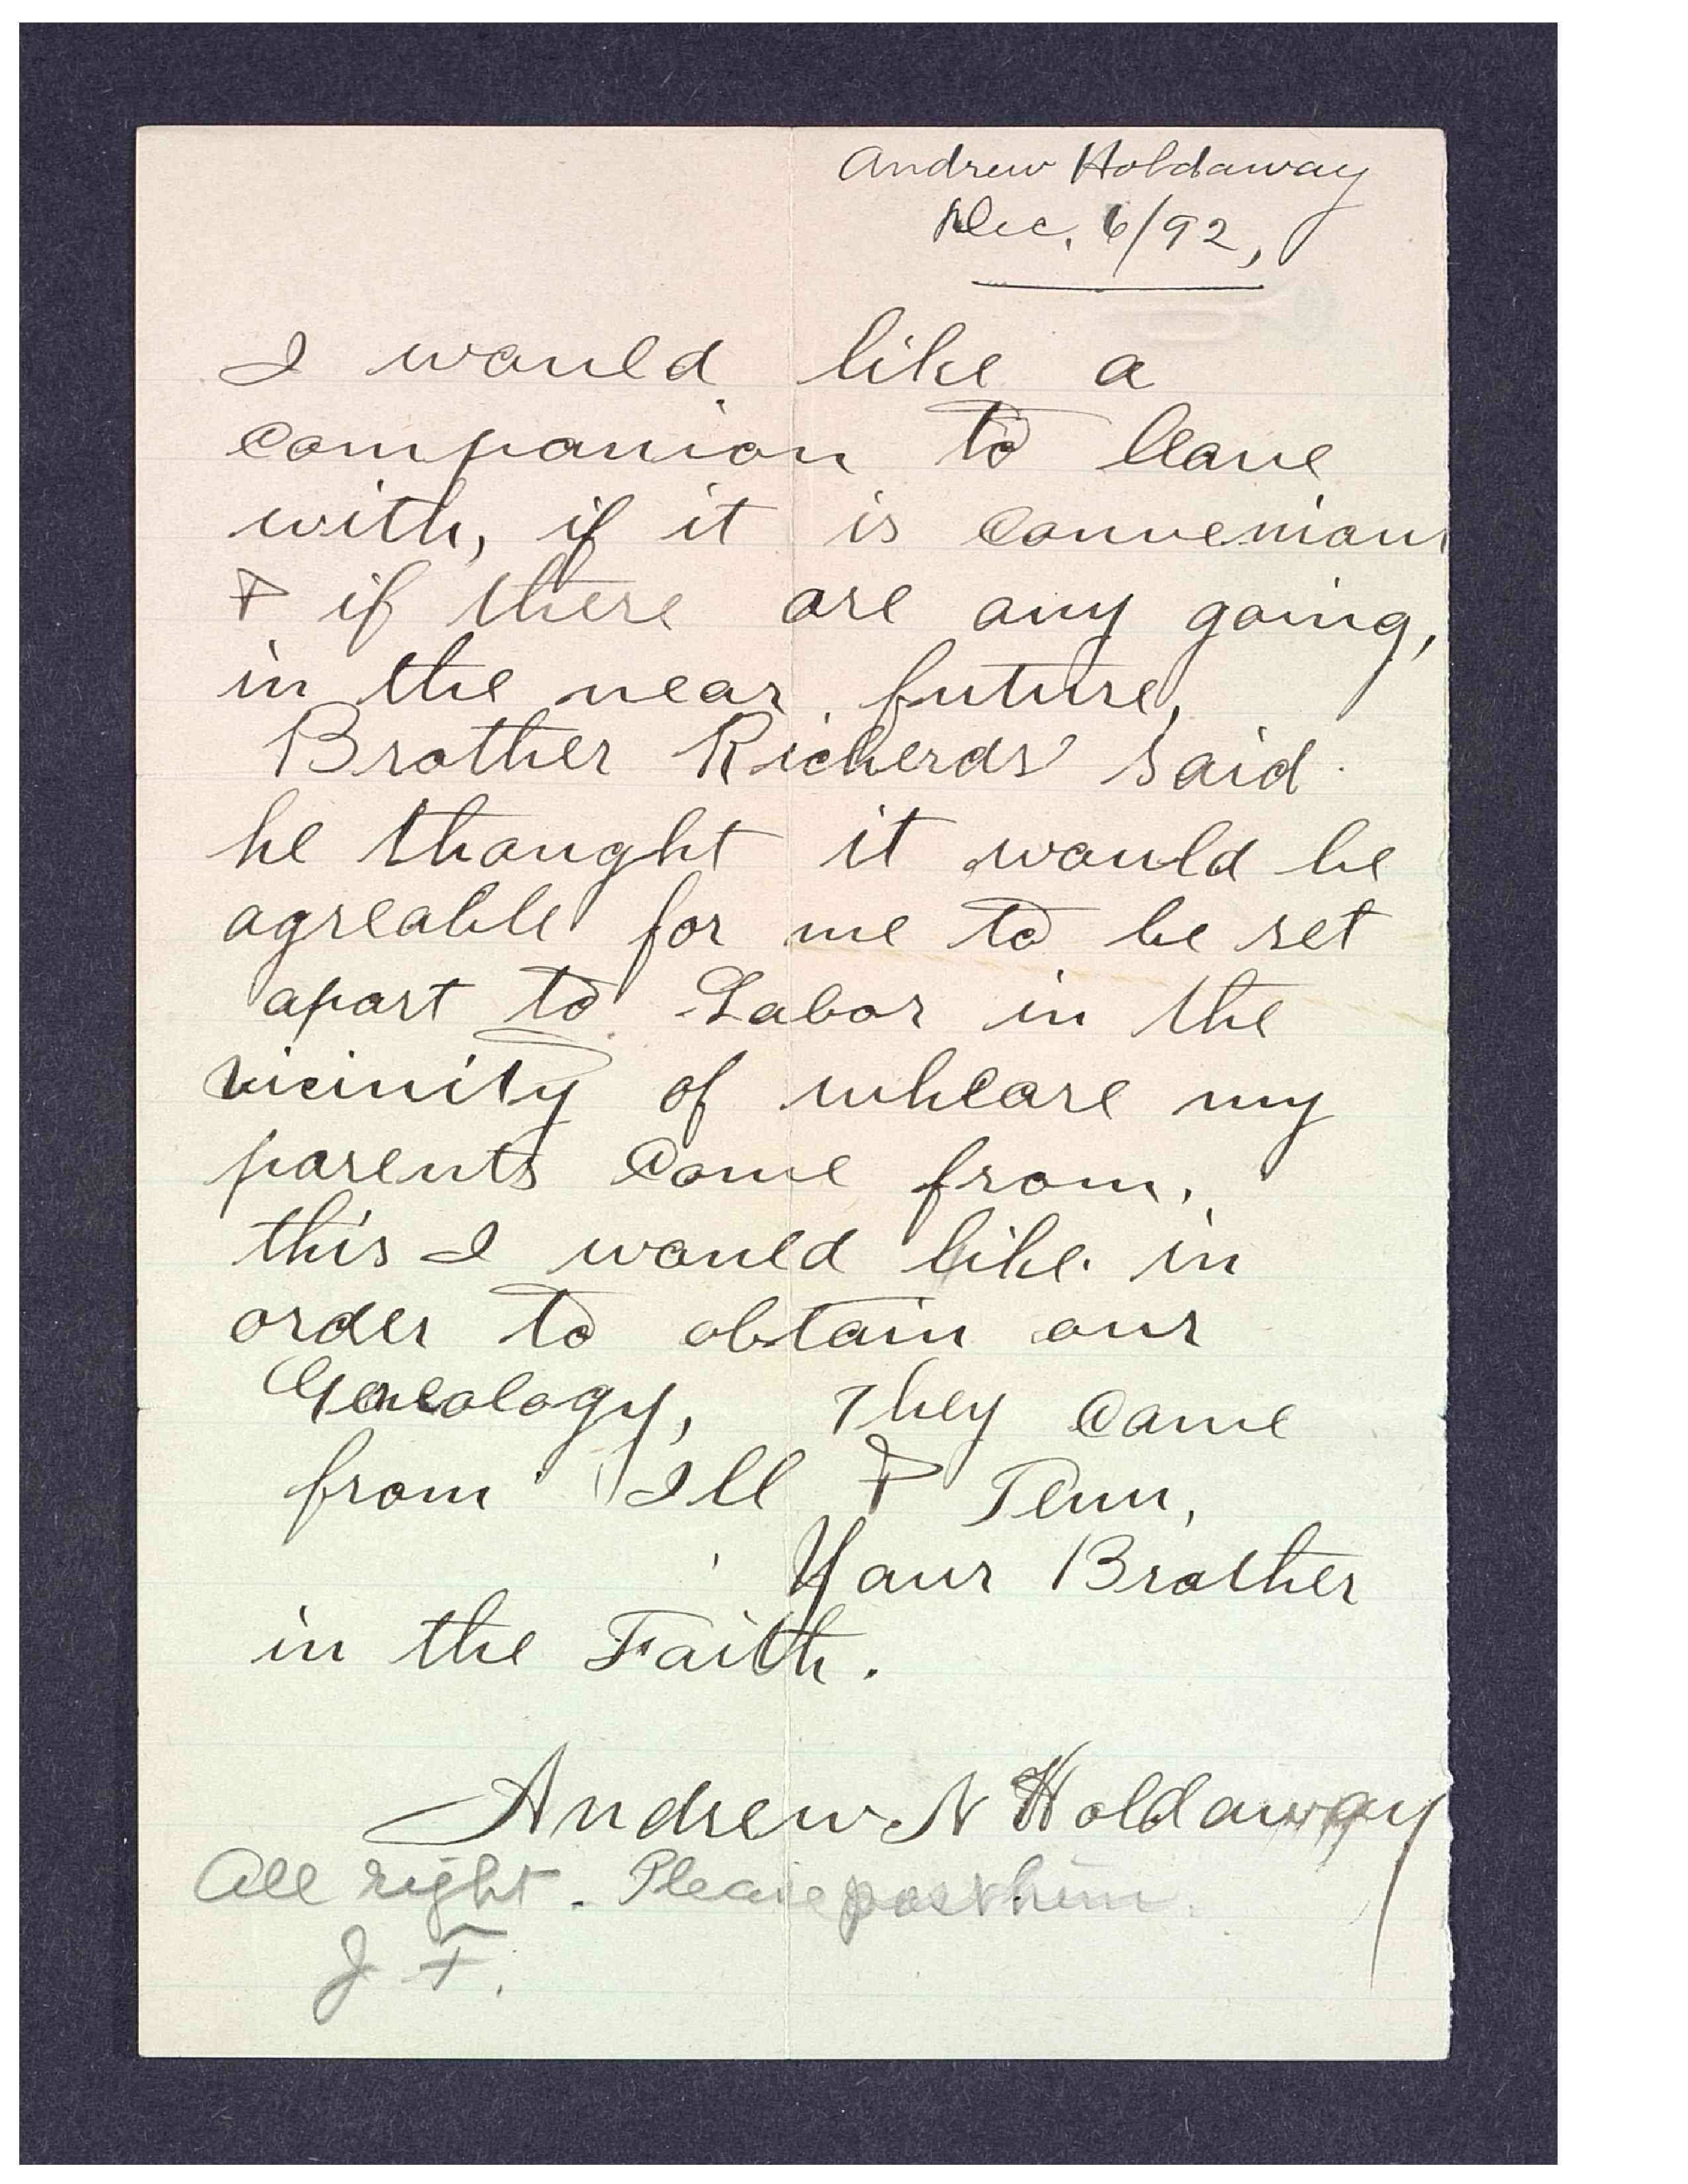 Andrew Holdaway
Dec. 6/92,
I would like a
companion to leave
with, if it is convenian
& if there are any going,
in the near future,
Brother Richerds said
he thought it would be
agreable for me to be set
apart to Labor in the
vicinity of wheare my
parents came from.
this I would like in
order to obtain our
Genealogy, They came
from Ill & Tenn,
Your Brother
in the Faith.
Andrew N Holdaway
All right. Please post him.
J F.